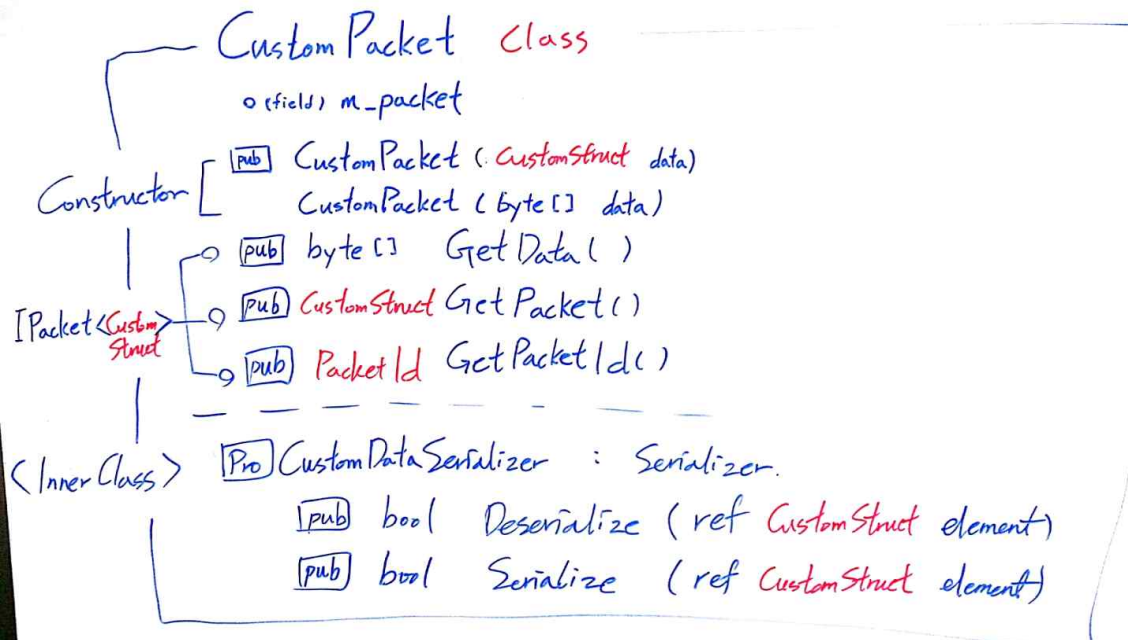 CustomPacket Class
o (field) m_packet
Constructor
pub CustomPacket (CustomStruct data)
CustomPacket (byte[] data)
pub byte[] GetData()
IPacket<Custom Struct>
pub CustomStruct GetPacket()
pub PacketId GetPacketId()
<InnerClass>
Pro CustomDataSerializer : Serializer.
pub bool Deserialize (ref CustomStruct element)
pub bool Serialize (ref CustomStruct element)